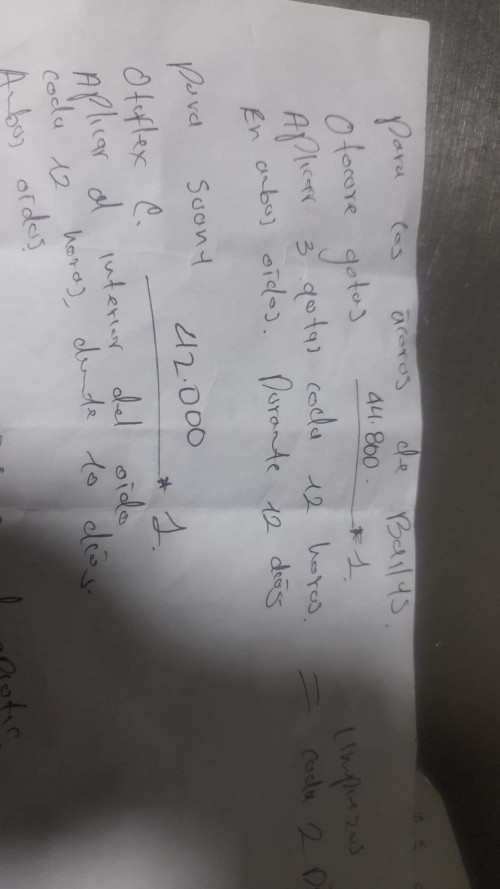 Para los ácaros de Bailys.
44.800.
Otocare gotas * 1.
Aplicar 3 gotas cada 12 horas.
En ambos oídos. Durante 12 días
Limpiezas
= cada 2
Para Soony
42.000
Otoflex C. * 1.
Aplicar al interior del oído
cada 12 horas, durante 10 días.
Ambos oídos.